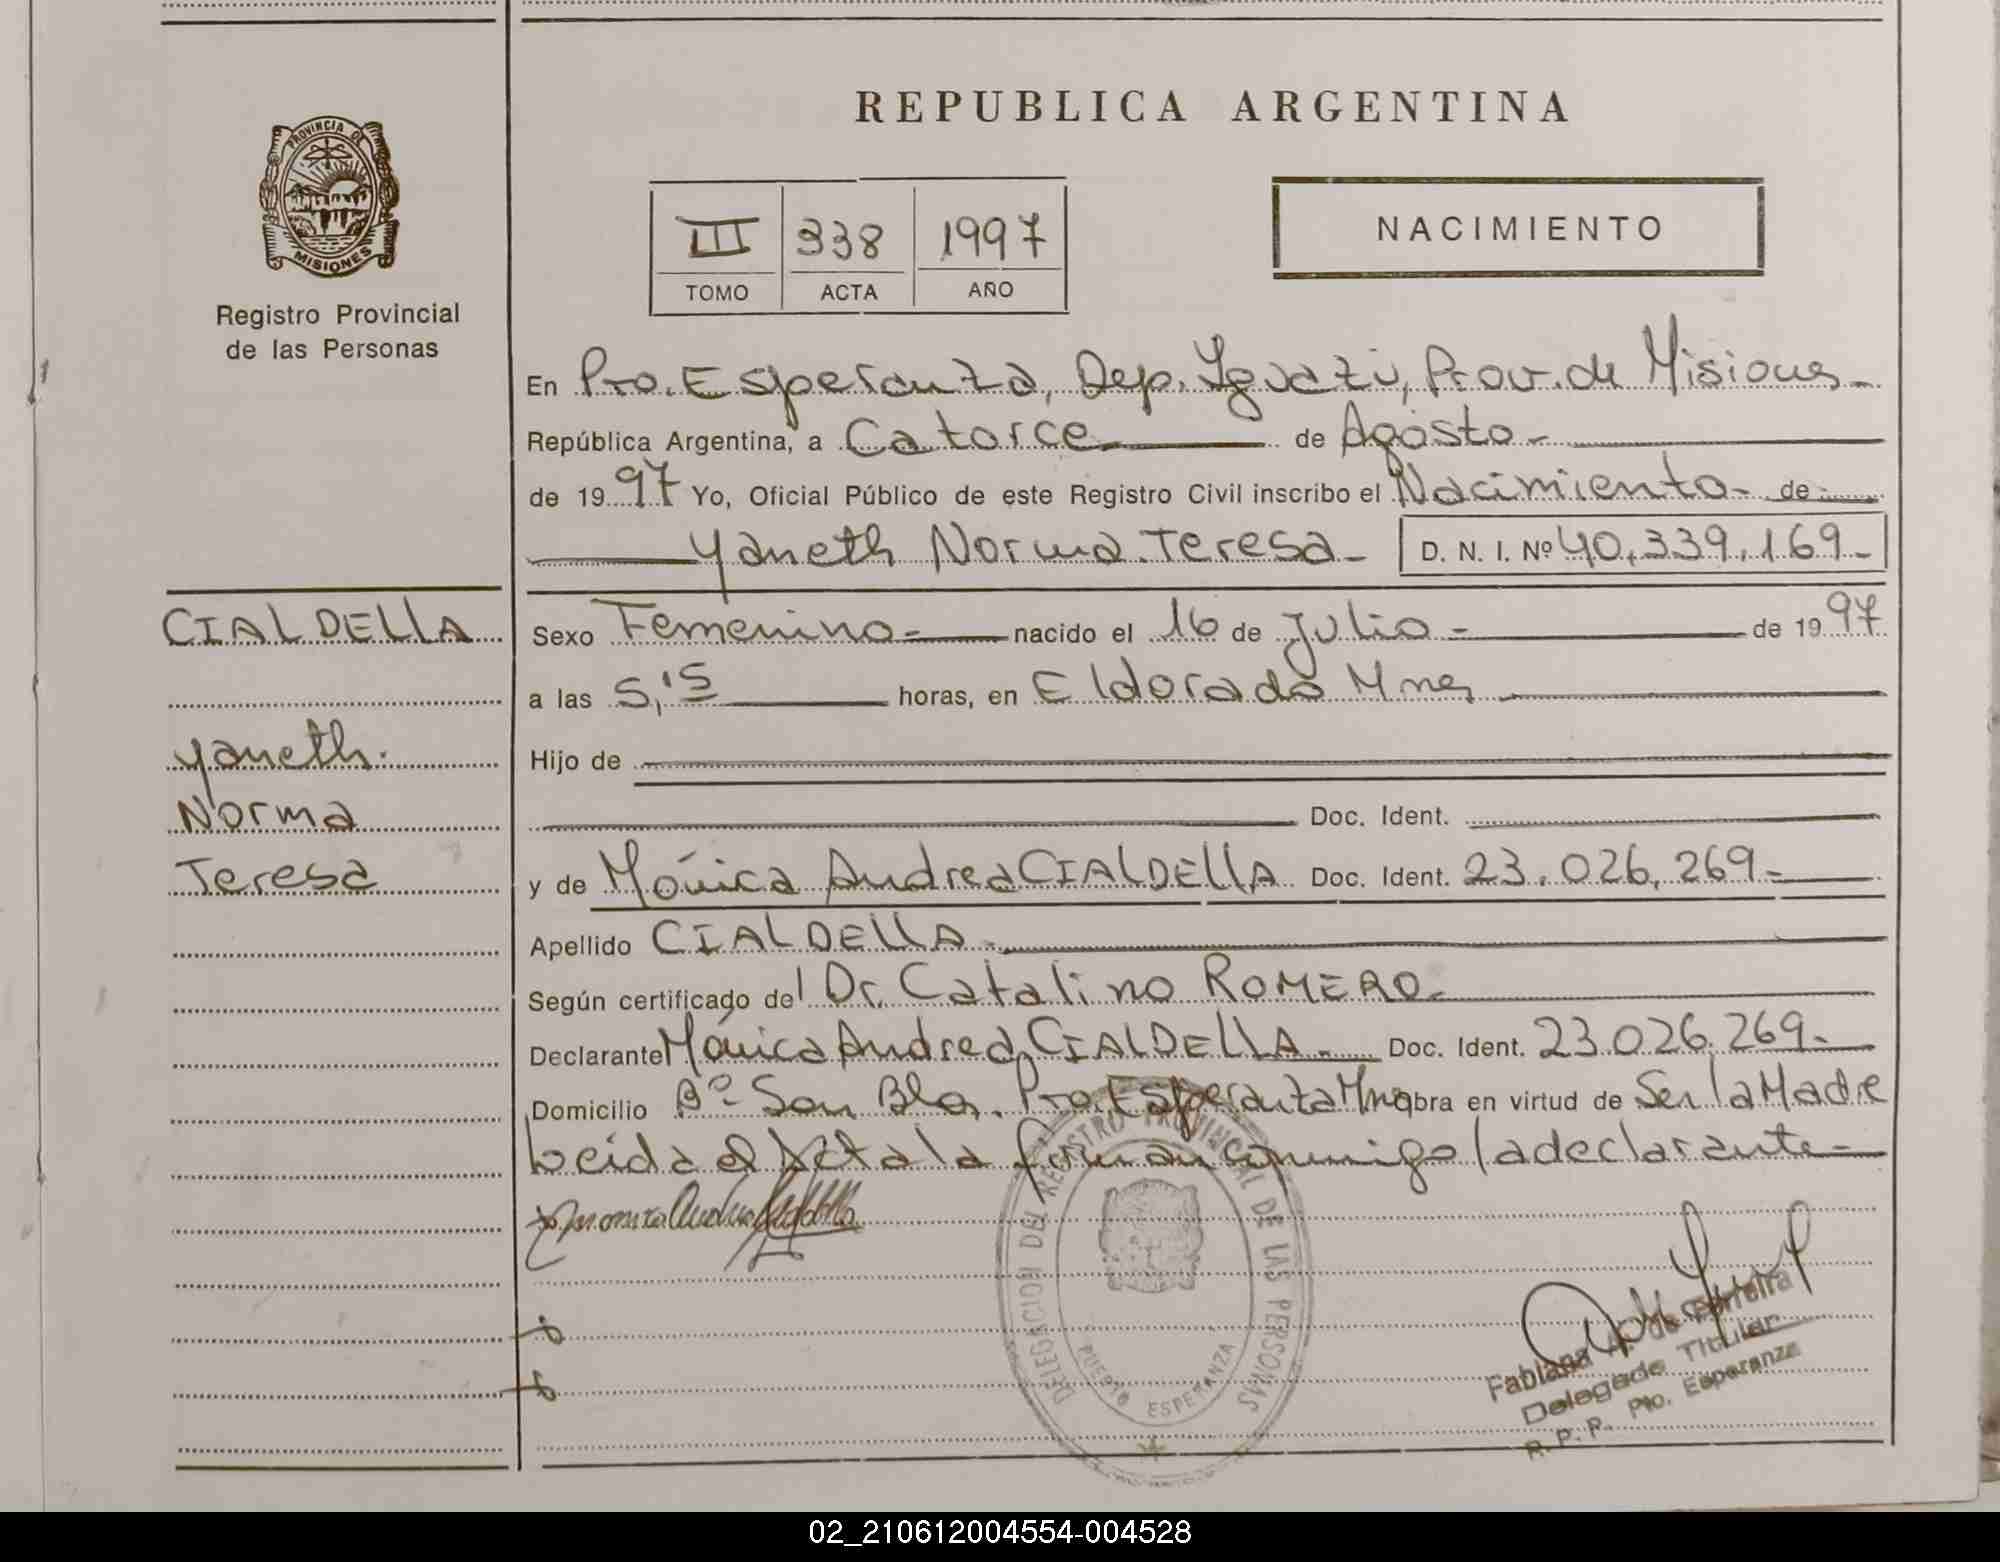 REPUBLICA ARGENTINA
PROVINCIA DE
MISIONES
Registro Provincial
de las Personas
III 338 1997
TOMO ACTA AÑO
NACIMIENTO
En Pto. Esperanza, Dep. Iguazú, Prov. de Misiones
República Argentina, a Catorce de Agosto
de 1997 Yo, Oficial Público de este Registro Civil inscribo el Nacimiento de
Yaneth Norma Teresa D. N. I. Nº 40.339.169
CIALDELLA
Yaneth
Norma
Teresa
Sexo Femenino nacido el 16 de Julio de 1997
a las 5,15 horas, en Eldorado Mnes
Hijo de
Doc. Ident.
y de Mónica Andrea CIALDELLA Doc. Ident. 23.026.269
Apellido CIALDELLA
Según certificado del Dr. Catalino ROMERO
Declarante Mónica Andrea CIALDELLA Doc. Ident. 23.026.269
Domicilio Bº San Blas. Pto. Esperanza Mnes obra en virtud de Ser la Madre
Leida el Acta la firman conmigo la declarante
DELEGACION DEL REGISTRO PROVINCIAL DE LAS PERSONAS
PUERTO ESPERANZA
Fabiana A. de Ferreira
Delegada Titular
R. P. P. Pto. Esperanza
02_210612004554-004528